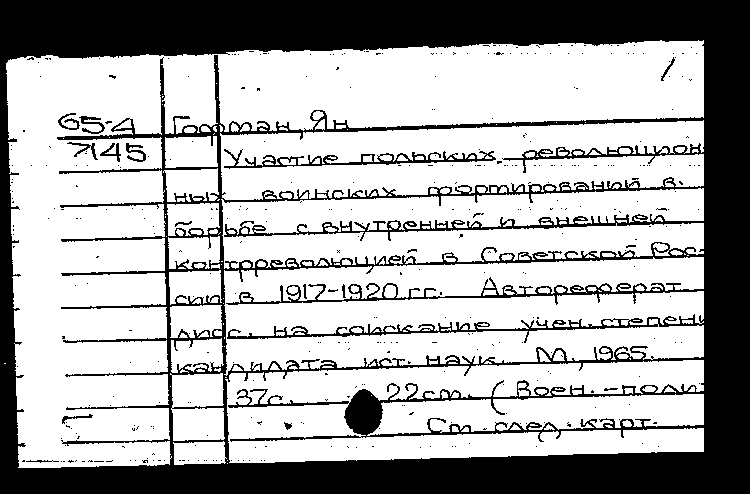 1
65-4 Гофман, Ян
7145 Участие польских революцион
ных воинских формирований в
борьбе с внутренней и внешней
контрреволюцией в Советской Рос-
сии в 1917-1920 гг. Автореферат
дисс. на соискание учен. степени
кандидата ист. наук. М., 1965.
37с. 22cm. (Воен.-полит
См. след. карт.